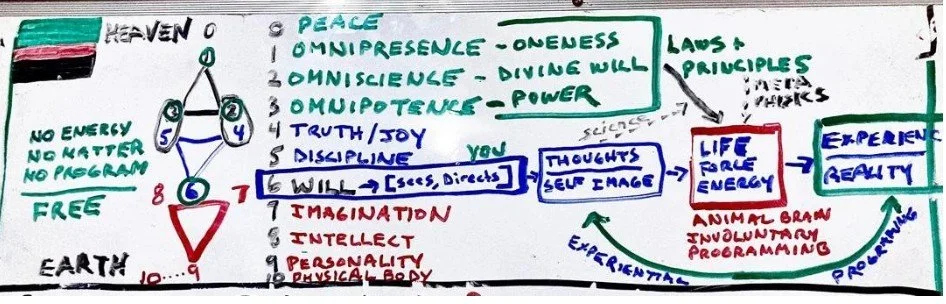 HEAVEN 0
1
3 2
5 4
NO ENERGY
NO MATTER
NO PROGRAM
FREE
8 6 7
EARTH
10....9
0 PEACE
1 OMNIPRESENCE - ONENESS
2 OMNISCIENCE - DIVINE WILL
3 OMNIPOTENCE - POWER
4 TRUTH/JOY
5 DISCIPLINE
YOU
6 WILL → [Sees, Directs]
7 IMAGINATION
8 INTELLECT
9 PERSONALITY
10 PHYSICAL BODY
THOUGHTS
SELF IMAGE
science
LAWS +
PRINCIPLES
META
PHYSICS
LIFE
FORCE
ENERGY
ANIMAL BRAIN
INVOLUNTARY
PROGRAMMING
EXPERIENC
REALITY
EXPERIENTIAL
PROGRAMING